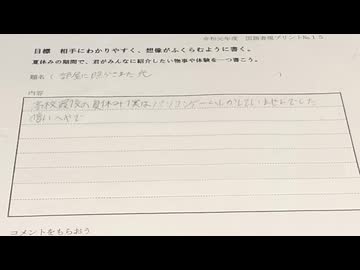 令和元年度 国語表現プリントNo.15
目標 相手にわかりやすく、想像がふくらむように書く。
夏休みの期間で、君がみんなに紹介したい物事や体験を一つ書こう。
題名（ 部屋に隠された死 ）
内容
高校最後の夏休み僕はパソコンゲームしかしていませんでした
暗いへやで
コメントをもらおう